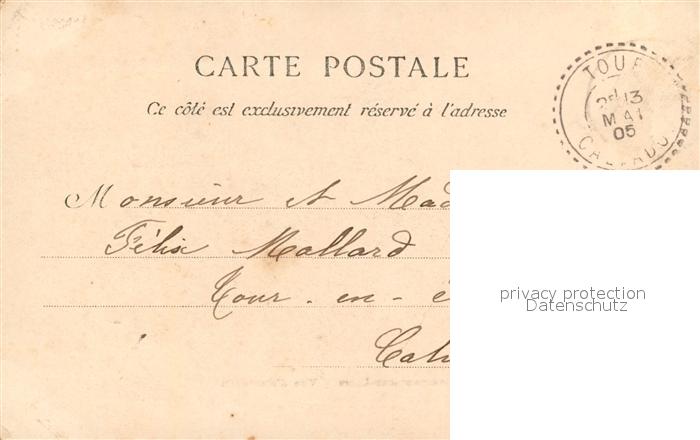 CARTE POSTALE
Ce côté est exclusivement réservé à l'adresse
TOU
13
MAI
05
CALVADOS
Monsieur et Mad
Félix Mallard
Tour-en-
privacy protection
Datenschutz